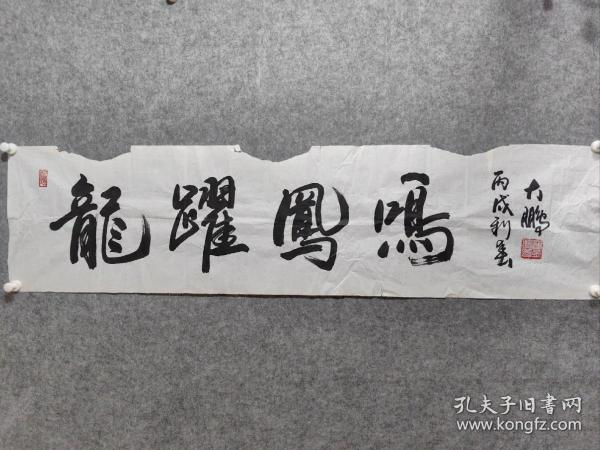 龍躍鳳鳴
丙戌利春
大鹏
孔夫子旧书网
www.kongfz.com